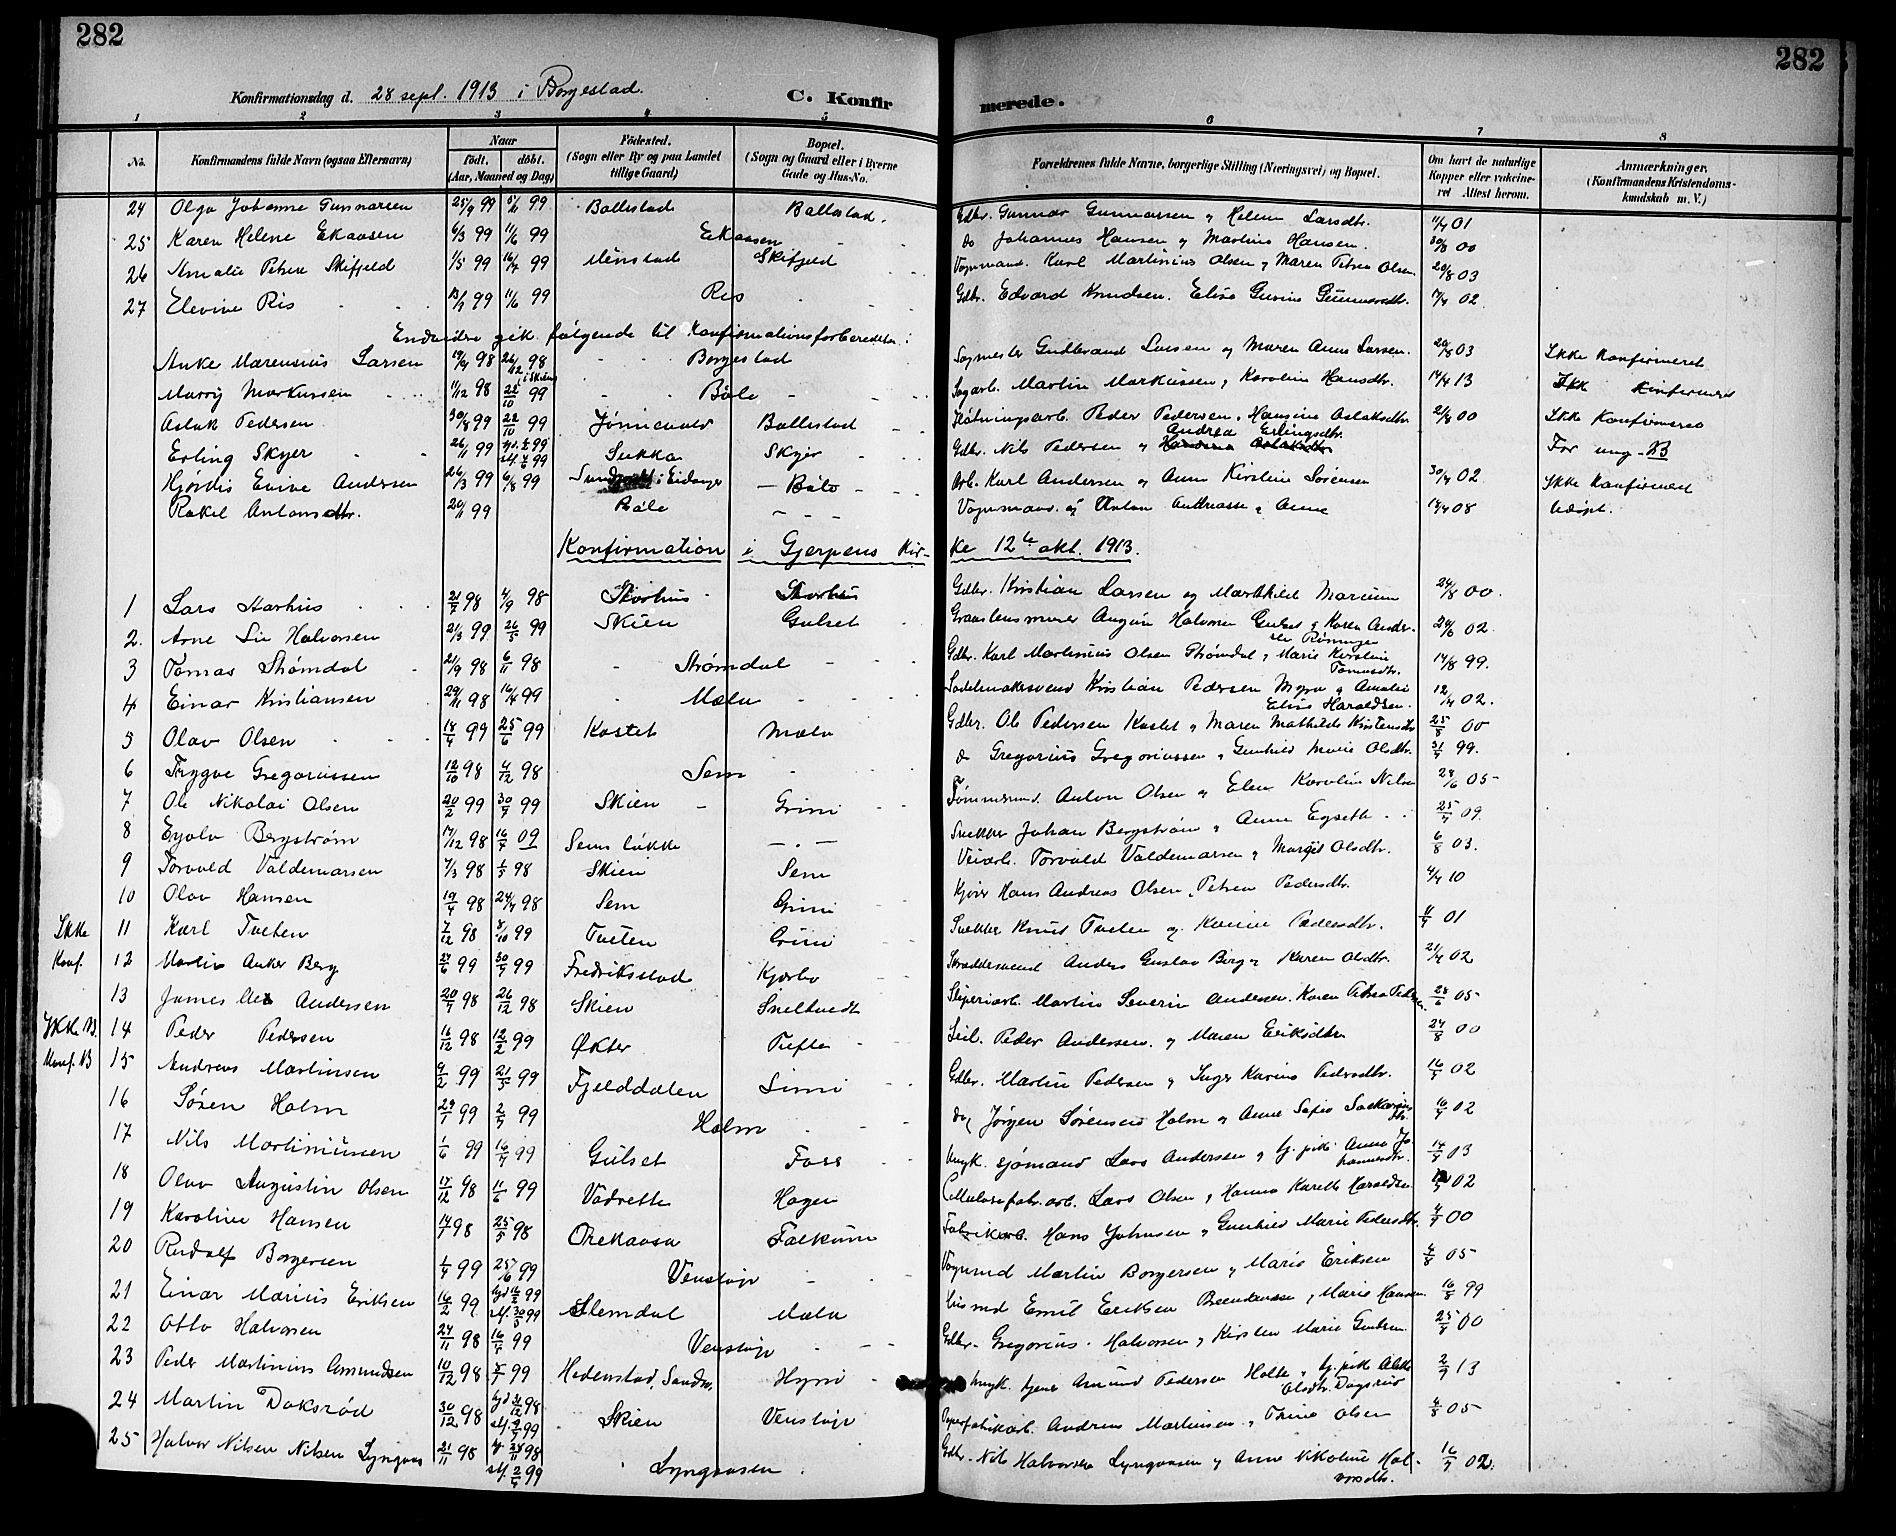 282
282
Konfirmationsdag d. 28 sept. 1913 i Borgestad.
C. Konfirmerede.
1 2 3 4 5 6 7 8
No.
Konfirmandens fulde Navn (ogsaa Efternavn)
Naar
født. døbt.
(Aar, Maaned og Dag)
Födested.
(Sogn eller By og paa Landet tillige Gaard)
Bopæl.
(Sogn og Gaard eller i Byerne Gade og Hus-No.
Forældrenes fulde Navne, borgerlige Stilling (Næringsvei) og Bopæl.
Om havt de naturlige Kopper eller vakcineret Attest herom.
Anmærkninger,
(Konfirmandens Kristendomskundskab m. V.)
24 Olga Johanne Gunnarsen 25/9 99 5/11 99 Ballestad Ballestad. Gdbr. Gunnar Gunnarsen og Helene Larsdtr. 01
25 Karen Helene Ekaasen 6/3 99 11/6 99 Ekaasen do Johannes Hansen og Martine Hansen. 30/8 00
26 Amalie Petrea Skifjeld 1/5 99 16/7 99 Menstad Skifjeld Vognmand. Karl Martinius Olsen og Maren Petrea Olsen 20/8 03
27 Elevine Ris 99 11/6 99 Ris Gdbr. Edvard Knudsen. Elise Gurine Gunnarsdtr. 02
Endvidere gik følgende til Konfirmationsforberedelse:
Anke Marensius Larsen 98 26/12 98 i Skien Borgestad Sagmester Gudbrand Larsen og Maren Anne Larsen. 20/8 03 Ikke konfirmeret
Marry Markussen 11/12 98 22/10 99 Bøle Sagarb. Martin Markussen, Karoline Hansdtr. 14/4 13 Ikke konfirmeret
Aslak Pedersen 30/8 99 22/10 99 Jønnevald Ballestad Fløtningsarb. Peder Pedersen, Hansine Aslaksdtr. 00 Ikke konfirmeret
Erling Skyer 26/11 99 99 99 Sukka Skyer Gdbr. Nils Pedersen og Andrea Erlingsdtr. For ung - B
Hjordis Evine Andersen 26/3 99 6/8 99 i Eidanger - Bøle - Arb. Karl Andersen og Anne Kirstine Sørensen 30/4 02 Ikke konfirmert
Rakel Antonsdtr. 20/11 99 Bøle - - - Vognmand. og Anton Andreasse og Anne 14/4 08 Udøpt.
Konfirmation i Gjerpens Kirke 12te okt. 1913.
1 Lars Aarhus 21/7 98 4/9 98 Gdbr. Kristian Larsen og Marthilde 24/8 00.
2. Arne Lie Halvorsen 21/3 99 26/5 99 Skien Gulset Halvorsen Gulset og Karen Andersen Rønningen 24/6 02.
3 Tomas Strømdal 21/9 98 6/11 98 Strømdal Gdbr. Karl Martinius Olsen Strømdal, Marie Kirstine Tomasdtr. 14/8 99.
4 Einar Kristiansen 29/11 98 16/4 99 Mæla Sadelmakersvend Kristian Pedersen Myra og Amalie Elise Haraldsen. 12/4 02.
5 Olav Olsen 18/4 99 25/6 99 Kastet Mæla Gdbr. Ole Pedersen Kastet og Maren Mathilde Kirstensdtr 25/8 00
6 Trygve Gregoriussen 12/10 98 4/12 98 Sem do Gregorius Gregoriussen, Gunhild Marie Olsdtr. 31/7 99.
7 Ole Nikolai Olsen 20/2 99 30/7 99 Skien - Grini Tømmermd. Anton Olsen og Elen Karoline Nilsen 28/6 05
8 Eyolv Bergstrøm 17/12 98 16/7 09 Sems løkke - . - Snekker Johan Bergstrøm, Anne Egseth 25/7 09.
9 Torvald Valdemarsen 7/3 98 1/5 98 Skien Sem Veiarb. Torvald Valdemarsen, Margit Olsdtr. 6/8 03.
10 Olav Hansen 19/4 98 24/4 98 Sem Grini Kjører Hans Andreas Olsen, Petrea Pedersdtr. 4/4 10
Ikke 11 Karl Tveten 7/12 98 8/10 99 Tveten Grini Snekker Knud Tveten og Karine Pedersdtr. 01
Konf. 12 Martin Anker Berg 99 30/7 99 Fredriksstad Kjørbo Skræddersvend Anders Gustav Berg, Karen Olsdtr. 21/4 02
13 James Alex Andersen 20/7 98 26/12 98 Skien Sneltvedt Sliperiarb. Martin Severin Andersen. Karen Petrea Pedersen. 28/6 05
Ikke B. 14 Peder Pedersen 16/12 98 12/2 99 Økter Tufte Peder Andersen og Maren Eriksdtr 27/8 00
Konf. B 15 Andreas Martinsen 9/2 99 21/5 99 Fjelddalen Limi Gdbr. Martin Pedersen, Inger Karine Pedersdtr. 16/7 02
16 Søren Holm 29/1 99 2/7 99 Holm do, Jørgen Sørensen Holm og Anne Sofie 16/7 02
17 Nils Martiniussen 1/6 99 16/7 99 Gulset Foss Ungk. sjømand Lars Andersen, tj. pike Anna Johannesdtr. 14/7 03
18 Olav Augustin Olsen 17/12 98 11/6 99 Vadrette Hagen Cellulosefabr. arb. Lars Olsen, Hanna Karette Haraldsen 02
19 Karoline Hansen 14/ 98 25/5 98 Orekaasa Falkum Fabrikarb. Hans Johnsen, Gunhild Marie Pedersdtr. 4/7 00
20 Rudolf Borgersen 1/4 99 25/6 99 Venstøp Vognmd Martin Borgersen, Marie Eriksen 4/8 05
21 Einar Marius Eriksen 16/2 99 99 99 Slemdal Mæla Husmd Emil Eriksen Marie Hansen. 16/8 99
22 Otto Halvorsen 24/11 98 16/7 99 Venstøp Gdbr. Gregorius Halvorsen, Kirsten Marie Gundersen. 25/8 00
23 Peder Martinius Amundsen 10/12 98 99 Hedenstad, Sandsv. Hyni Ungk. tjener Amund Pedersen Holte, tj. pike Olsdtr. Dagsrud 2/7 13
24 Martin Doksrød 30/12 98 98 99 Skien Venstøp Papirfabrikarb. Andreas Martinsen, Trine Olsen 4/8 05
25 Halvor Nilsen Nilsen Lyngaas 21/11 98 98 99 Lyngaasen Gdbr. Nils Halvorsen Lyngaasen og Anne Nikoline Halvorsdtr. 16/7 02.